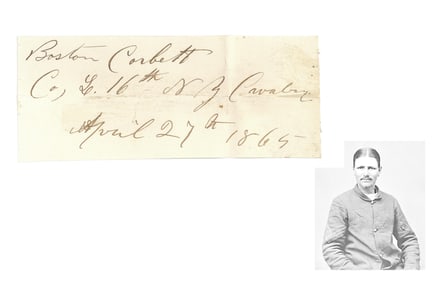 Boston Corbett
Co, L. 16th N Y Cavalry
April 27th 1865